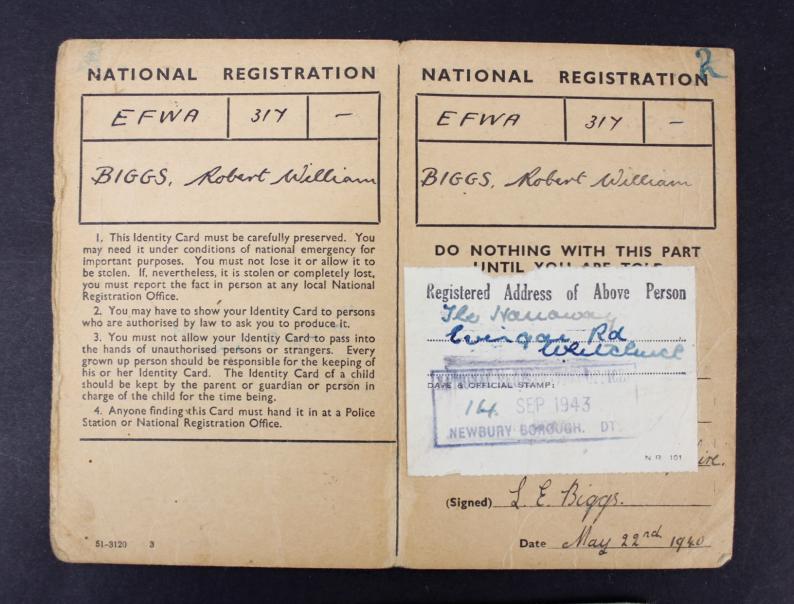 NATIONAL REGISTRATION
EFWA 317 –
BIGGS, Robert William
1. This Identity Card must be carefully preserved. You
may need it under conditions of national emergency for
important purposes. You must not lose it or allow it to
be stolen. If, nevertheless, it is stolen or completely lost,
you must report the fact in person at any local National
Registration Office.
2. You may have to show your Identity Card to persons
who are authorised by law to ask you to produce it.
3. You must not allow your Identity Card to pass into
the hands of unauthorised persons or strangers. Every
grown up person should be responsible for the keeping of
his or her Identity Card. The Identity Card of a child
should be kept by the parent or guardian or person in
charge of the child for the time being.
4. Anyone finding this Card must hand it in at a Police
Station or National Registration Office.
51-3120 3
2
NATIONAL REGISTRATION
EFWA 317 –
BIGGS, Robert William
DO NOTHING WITH THIS PART
UNTIL YOU ARE TOLD
Registered Address of Above Person
The
Rd
DATE & OFFICIAL STAMP:
14 SEP 1943
NEWBURY BOROUGH. DT
N.R. 101
(Signed) L. E. Biggs.
Date May 22nd 1940